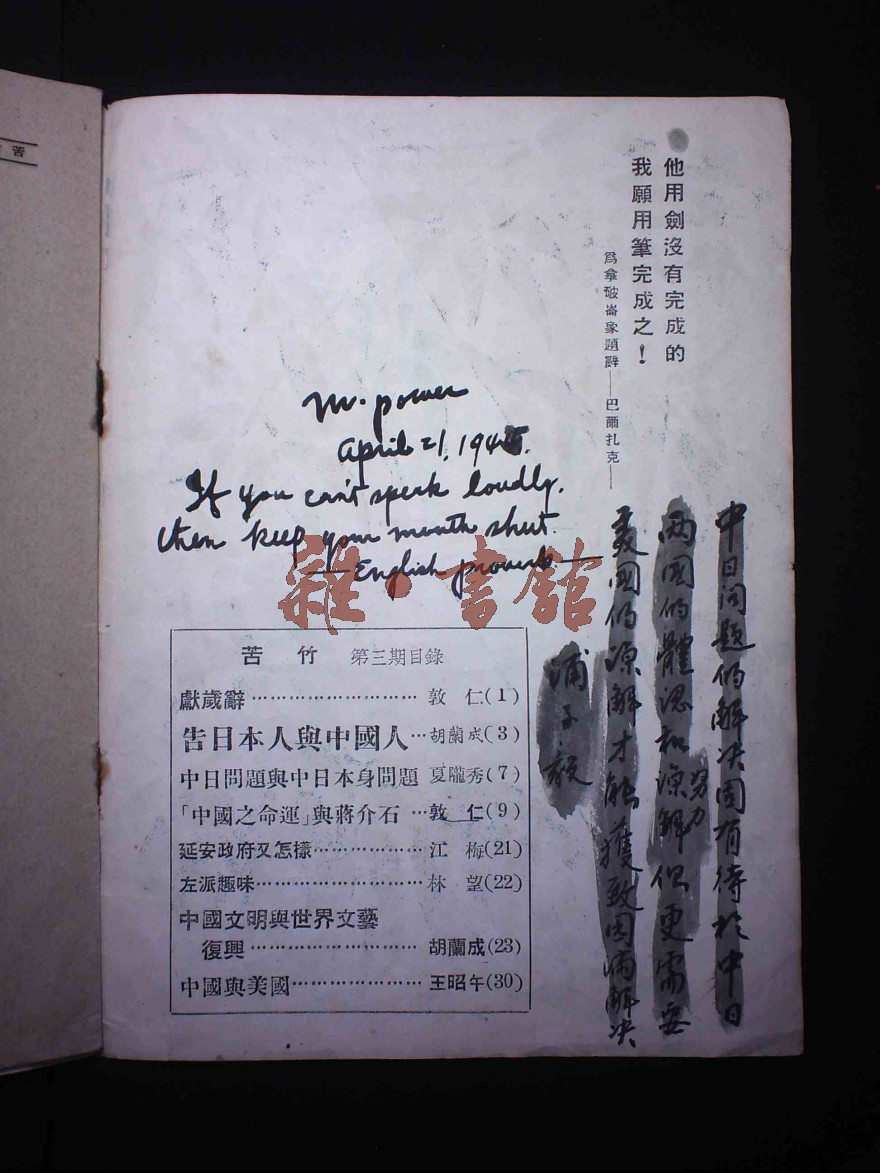 苦
他用劍沒有完成的
我願用筆完成之！
爲拿破崙象題辭——巴爾扎克——
m. power
april 21, 1945.
If you can't speak loudly.
then keep your mouth shut.
— English proverb —
雜·書館
中日问题的解决固有待於中日
两国的體認和諒解努力但更需要
美国的諒解才能獲致圆满解决
浦
苦竹 第三期目錄
獻歲辭………………………敦 仁(1)
告日本人與中國人…胡蘭成(3)
中日問題與中日本身問題 夏隴秀(7)
「中國之命運」與蔣介石…敦 仁(9)
延安政府又怎樣………………江 梅(21)
左派趣味………………………林 望(22)
中國文明與世界文藝
復興………………………胡蘭成(23)
中國與美國…………………王昭午(30)